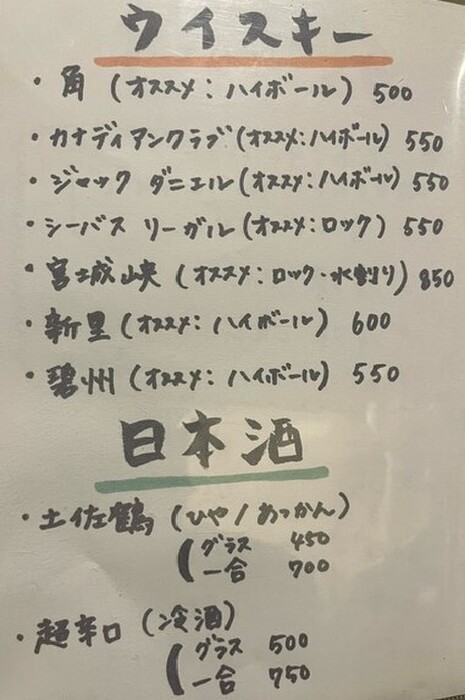 ウイスキー
・角 (オススメ:ハイボール) 500
・カナディアンクラブ(オススメ:ハイボール) 550
・ジャック ダニエル(オススメ:ハイボール) 550
・シーバス リーガル(オススメ:ロック) 550
・宮城峡 (オススメ:ロック・水割り) 850
・新里 (オススメ: ハイボール) 600
・碧州 (オススメ: ハイボール) 550
日本酒
・土佐鶴 (ひや/あっかん)
(グラス 450
一合 700
・超辛口 (冷酒)
(グラス 500
一合 750